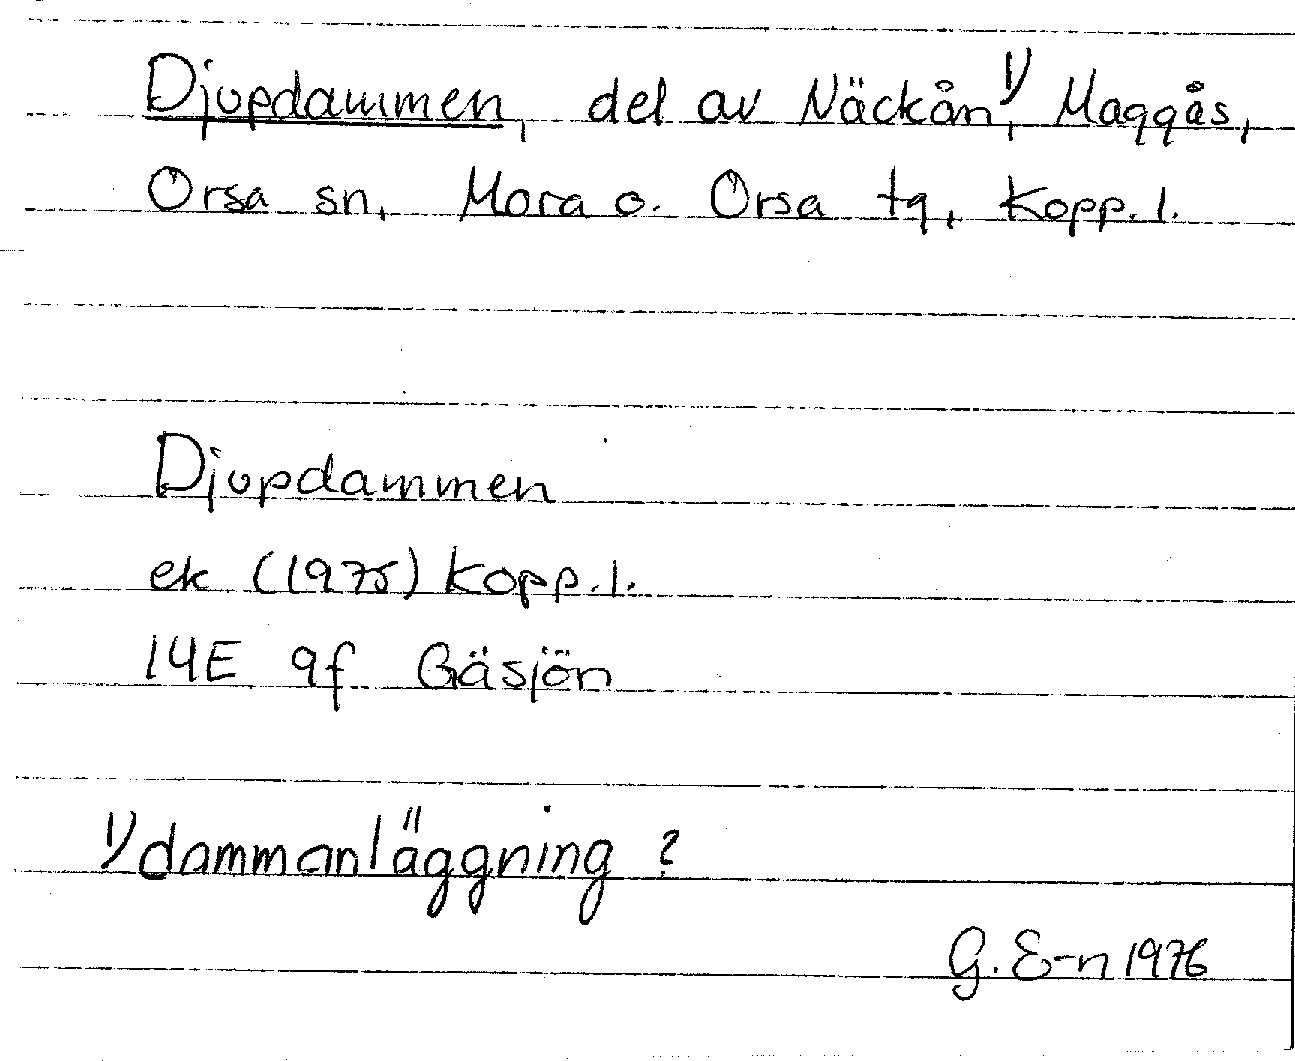 Djupdammen, del av Näckån,¹⁾ Maggås,
Orsa sn, Mora o. Orsa tg, Kopp. l.
Djupdammen
ek (1975) Kopp. l.
14E 9f Gäsjön
1) dammanläggning ?
G. E-n 1976